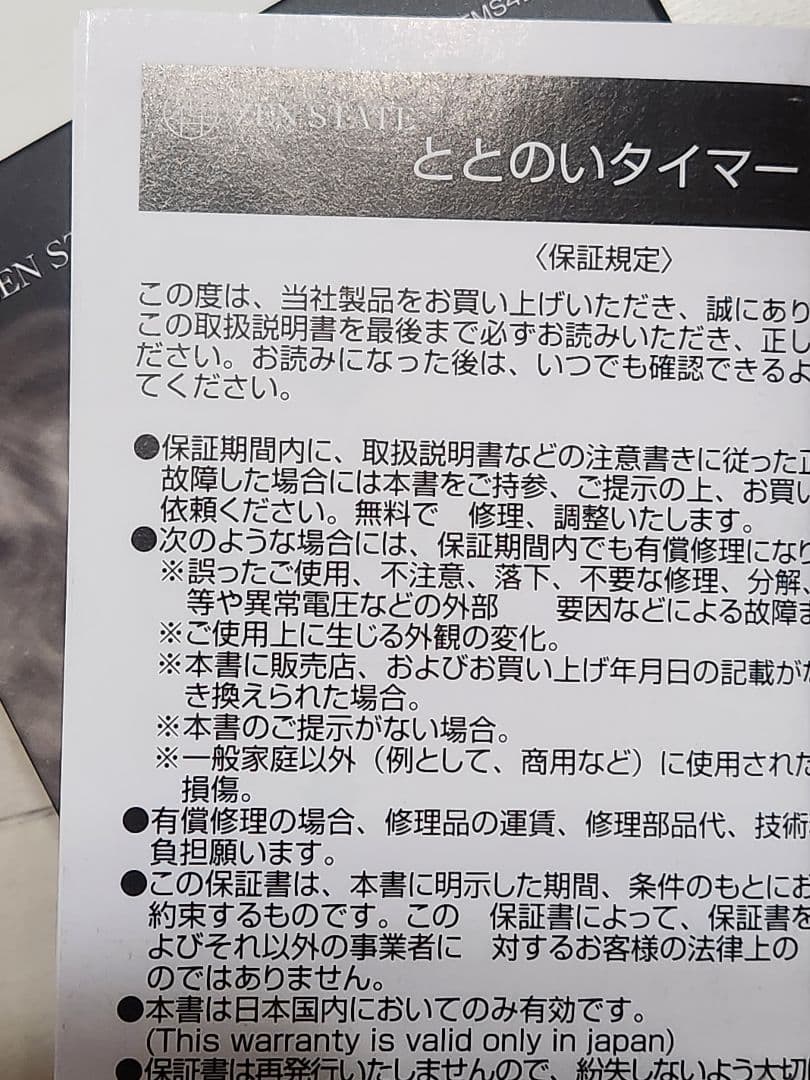 EMS4
EN ST
ZEN STATE
ととのいタイマー
〈保証規定〉
この度は、当社製品をお買い上げいただき、誠にあり
この取扱説明書を最後まで必ずお読みいただき、正し
ださい。お読みになった後は、いつでも確認できるよ
てください。
●保証期間内に、取扱説明書などの注意書きに従った正
故障した場合には本書をご持参、ご提示の上、お買い
依頼ください。無料で 修理、調整いたします。
●次のような場合には、保証期間内でも有償修理になり
※誤ったご使用、不注意、落下、不要な修理、分解、
等や異常電圧などの外部 要因などによる故障ま
※ご使用上に生じる外観の変化。
※本書に販売店、およびお買い上げ年月日の記載がな
き換えられた場合。
※本書のご提示がない場合。
※一般家庭以外（例として、商用など）に使用された
損傷。
●有償修理の場合、修理品の運賃、修理部品代、技術
負担願います。
●この保証書は、本書に明示した期間、条件のもとにお
約束するものです。この 保証書によって、保証書を
よびそれ以外の事業者に 対するお客様の法律上の
のではありません。
●本書は日本国内においてのみ有効です。
(This warranty is valid only in japan)
●保証書は再発行いたしませんので、紛失しないよう大切